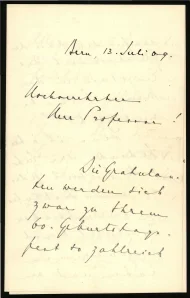 Bern, 13. Juli 09.
Hochverehrter
Herr Professor!
Die Gratulan-
ten werden sich
zwar zu Ihrem
60. Geburtstags-
fest so zahlreich